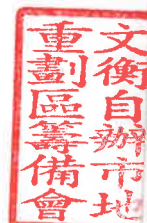 文衡自辦市地
重劃區籌備會